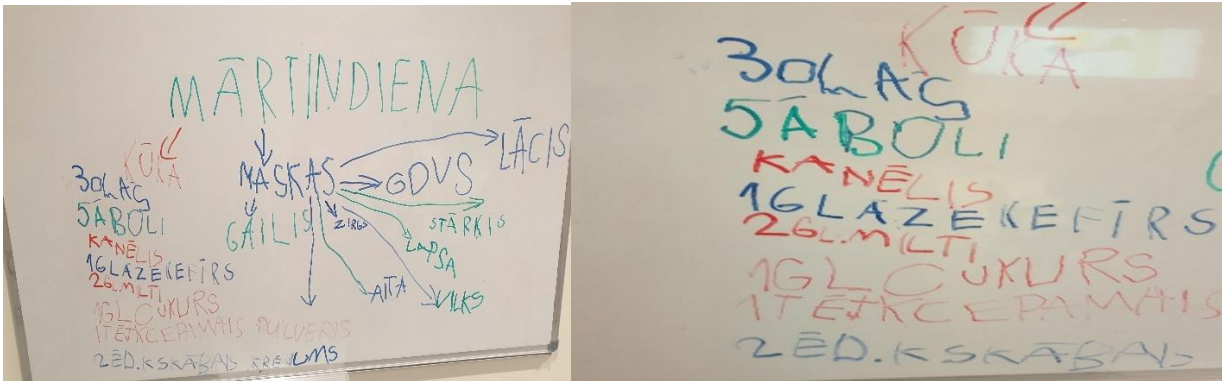 MĀRTIŅDIENA
MASKAS
LĀCIS
GOVS
STĀRĶIS
LAPSA
VILKS
AITA
ZIRGS
GAILIS
KŪKA
3 OLAS
5 ĀBOLI
KANĒLIS
1 GLĀZE KEFĪRS
2 GL. MILTI
1 GL CUKURS
1 TĒJK CEPAMAIS PULVERIS
2 ĒD.K SKĀBAIS KRĒJUMS
KŪKA
3 OLAS
5 ĀBOLI
KANĒLIS
1 GLĀZE KEFĪRS
2 GL. MILTI
1 GL CUKURS
1 TĒJK CEPAMAIS
2 ĒD. K SKĀBAIS